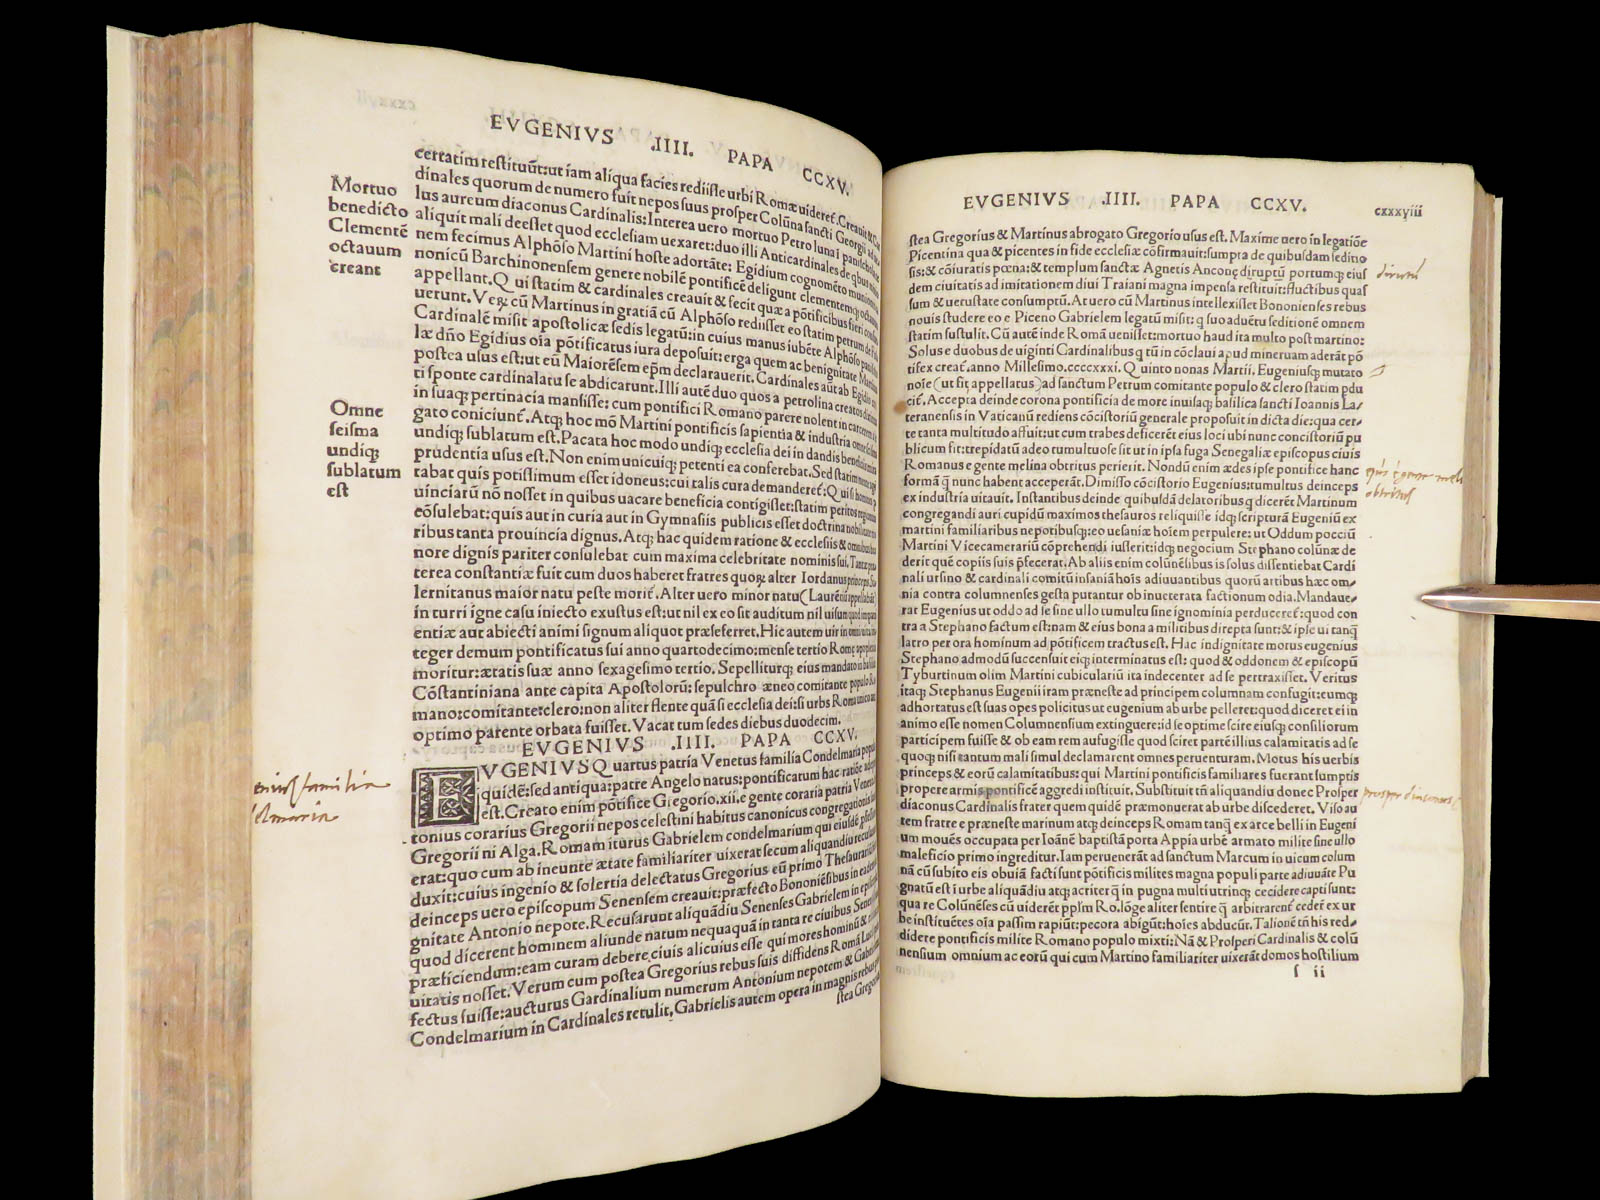 EVGENIVS .IIII. PAPA CCXV.
certatim restituūt: ut iam aliqua facies rediisse urbi Romæ uideret᷑. Creauit &
dinales quorum de numero fuit nepos suus prosper Colūna sancti Georgii ad
lus aureum diaconus Cardinalis: Interea uero mortuo Petro luna
aliquit mali deesset quod ecclesiam uexaret: duo illi Anticardinales de qbus
nem fecimus Alphōso Martini hoste adortāte: Egidium cognomēto
nonicū Barchinonensem genere nobilē pontificē deligunt clementemq; octauum
appellant. Q ui statim & cardinales creauit & fecit quæ a pōtificibus fieri
uerunt. Veꝝ cū Martinus in gratiā cū Alphōso rediisset eo statim petrum de
Cardinalē misit apostolicæ sedis legatū: in cuius manus iubēte Alphōso
læ dño Egidius oīa pōtificatus iura deposuit: erga quem ac benignitate Martinus
postea usus est: ut eū Maioresem ep̄m declarauerit. Cardinales aūt ab Egidio
ti sponte cardinalatu se abdicarunt. Illi autē duo quos a petrolina creatos
in suaq; pertinacia mansisse: cum pontifici Romano parere nolent in carcerem
gato coniciunt᷑. Atq; hoc mō Martini pontificis sapientia & industria
undiq; sublatum est. Pacata hoc modo undiq; ecclesia dei in dandis beneficiis
prudentia usus est. Non enim unicuiq; petenti ea conferebat. Sed statim
rabat quis potissimum esset idoneus: cui talis cura demandaret᷑: Q ui si
uinciarū nō nosset in quibus uacare beneficia contigisset: statim peritos
cōsulebat: quis aut in curia aut in Gymnasiis publicis esset doctrina nobilitate
ribus tanta prouincia dignus. Atq; hac quidem ratione & ecclesiis &
nore dignis pariter consulebat cum maxima celebritate nominis sui. Tantæ
terea constantiæ fuit cum duos haberet fratres quoꝝ alter Iordanus princeps
lernitanus maior natu peste morit᷑. Alter uero minor natu (Laurētiū appellabāt)
in turri igne casu iniecto exustus est: ut nil ex eo sit auditum nil uisum quod
entiæ aut abiecti animi signum aliquot præseferret. Hic autem uir in
teger demum pontificatus sui anno quartodecimo: mense tertio Romę apoplexia
moritur: ætatis suæ anno sexagesimo tertio. Sepelliturq; eius mandato in
Cōstantiniana ante capita Apostolorū: sepulchro æneo comitante populo Ro
mano: comitante: clero: non aliter flente quā si ecclesia dei: si urbs Roma unico
optimo parente orbata fuisset. Vacat tum sedes diebus duodecim.
Mortuo
benedicto
Clementē
octauum
creant
Omne
scisma
undiq;
sublatum
est
EVGENIVS .IIII. PAPA CCXV.
EVGENIVS Q uartus patria Venetus familia Condelmaria
quidē: sed antiqua: patre Angelo natus: pontificatum hac ratiōe
est. Creato enim pōtifice Gregorio. xii. e gente coraria patria Veneto
tonius corarius Gregorii nepos celestini habitus canonicus congregationis
Gregorii ni Alga. Romam iturus Gabrielem condelmarium qui eiusdē
erat: quo cum ab ineunte ætate familiariter uixerat secum aliquandiu
duxit: cuius ingenio & solertia delectatus Gregorius eū primo Thesaurarium
deinceps uero episcopum Senensem creauit: præfecto Bononiēsibus in eadem
gnitate Antonio nepote. Recusarunt aliquādiu Senenses Gabrielem in
quod dicerent hominem aliunde natum nequaquā in tanta re ciuibus
præficiendum: eam curam debere ciuis alicuius esse qui mores hominū &
uitatis nosset. Verum cum postea Gregorius rebus suis diffidens Romā
fectus fuisse: aucturus Gardinalium numerum Antonium nepotem & Gabrielem
Condelmarium in Cardinales retulit. Gabrielis autem opera in magnis rebus
stea Gregorius
familia
EVGENIVS .IIII. PAPA CCXV. cxxxyiii
stea Gregorius & Martinus abrogato Gregorio usus est. Maxime uero in legatiōe
Picentina qua & picentes in fide ecclesiæ cōfirmauit: sumpta de quibusdam seditio
sis: & cōiuratis pœna: & templum sanctæ Agnetis Anconę diruptū portumq; eius
dem ciuitatis ad imitationem diui Traiani magna impensa restituit: fluctibus quas
sum & uetustate consumptū. At uero cū Martinus intellexisset Bononienses rebus
nouis studere eo e Piceno Gabrielem legatū misit: q suo aduētu seditionē omnem
statim sustulit. Cū autē inde Romā uenisset: mortuo haud ita multo post martino:
Solus e duobus de uiginti Cardinalibus q tū in cōclaui apud mineruam aderāt pō
tifex creat᷑. anno Millesimo. ccccxxxi. Q uinto nonas Martii. Eugeniusq; mutato
noīe (ut sit appellatus) ad sanctum Petrum comitante populo & clero statim pdu
cit᷑. Accepta deinde corona pontificia de more inuisaq; basilica sancti Ioannis La-
teranensis in Vaticanū rediens cōcistoriū generale proposuit in dicta die: qua cer-
te tanta multitudo affuit: ut cum trabes deficerēt eius loci ubi nunc concistoriū pu
blicum fit: trepidatū adeo tumultuose sit ut in ipsa fuga Senegaliæ episcopus ciuis
Romanus e gente melina obtritus perierit. Nondū enim ædes ipse pontifice hanc
formā q̄ nunc habent acceperāt. Dimisso cōcistorio Eugenius: tumultus deinceps
ex industria uitauit. Instantibus deinde quibusdā delatoribus q dicerēt Martinum
congregandi auri cupidū maximos thesauros reliquisse idq; scripturā Eugeniū ex
martini familiaribus nepotibusq;: eo uesaniæ hoīem perpulere: ut Oddum pocciū
Martini Vicecamerariū cōprehendi iusserit: idq; negocium Stephano colūnæ de
derit quē copiis suis p̄fecerat. Ab aliis enim colūnēsibus is solus dissentiebat Cardi
nali ursino & cardinali comitū insaniā hoīs adiuuantibus quorū artibus hæc om-
nia contra columnenses gesta putantur ob inueterata factionum odia. Mandaue-
rat Eugenius ut oddo ad se sine ullo tumultu sine ignominia perduceret᷑: quod con
tra a Stephano factum est: nam & eius bona a militibus direpta sunt: & ipse ui tanq̄
latro per ora hominum ad pōtificem tractus est. Hac indignitate motus eugenius
Stephano admodū succensuit eiq; interminatus est: quod & oddonem & episcopū
Tyburtinum olim Martini cubiculariū ita indecenter ad se pertraxisset. Veritus
itaq; Stephanus Eugenii iram præneste ad principem columnam confugit: eumq;
adhortatus est suas opes policitus ut eugenium ab urbe pelleret: quod diceret ei in
animo esse nomen Columnensium extinguere: id se optime scire eiusq; consiliorum
participem fuisse & ob eam rem aufugisse quod sciret partē illius calamitatis ad se
quoq; nisi tantum mali simul declamarent omnes peruenturam. Motus his uerbis
princeps & eorū calamitatibus: qui Martini pontificis familiares fuerant sumptis
propere armis pontificē aggredi instituit. Substituit tñ aliquandiu donec Prosper
diaconus Cardinalis frater quem quidē præmonuerat ab urbe discederet. Viso au
tem fratre e præneste marinum atq; deinceps Romam tanq̄ ex arce belli in Eugeni
um mouēs occupata per Ioānē baptistā porta Appia urbē armato milite sine ullo
maleficio primo ingreditur. Iam peruenerāt ad sanctum Marcum in uicum colum
nā cū subito eis obuiā facti sunt pōtificis milites magna populi parte adiuuāte Pu
gnatū est ī urbe aliquādiu atq; acriter q̄ in pugna multi utrinq; cecidere capti sunt:
qua re Colūnēses cū uiderēt pp̄lm Ro. lōge aliter sentire q̄ arbitrarent᷑ cedēt ex ur
be instituētes oīa passim rapiūt: pecora abigūt: hoīes abducūt. Talionē tñ his red-
didere pontificis milite Romano populo mixti: Nā & Prosperi Cardinalis & colū
nensium omnium ac eorū qui cum Martino familiariter uixerāt domos hostilium
s ii